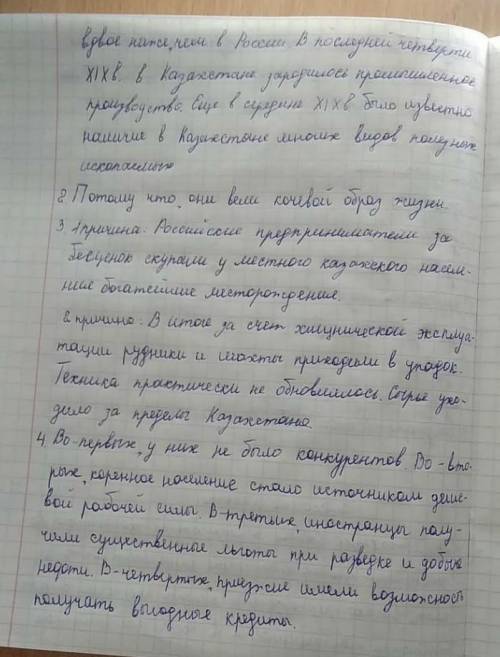 вдвое ниже, чем в России. В последней четверти
XIX в. в Казахстане зародилось промышленное
производство. Еще в середине XIX в было известно
наличие в Казахстане многих видов полезных
ископаемых
2. Потому что, они вели кочевой образ жизни.
3. 1 причина: Российские предприниматели за
бесценок скупали у местного казахского насел-
ния богатейшие месторождения.
2 причина: В итоге за счет хищнической эксплуа-
тации рудники и шахты приходили в упадок.
Техника практически не обновлялось. Сырье ухо-
дило за пределы Казахстана.
4. Во-первых, у них не было конкурентов. Во-вто-
рых, коренное население стало источником деше-
вой рабочей силы. В-третьих, иностранцы полу-
чили существенные льготы при разведке и добыче
недоти. В-четвертых, приезжие имели возможность
получать выгодные кредиты.